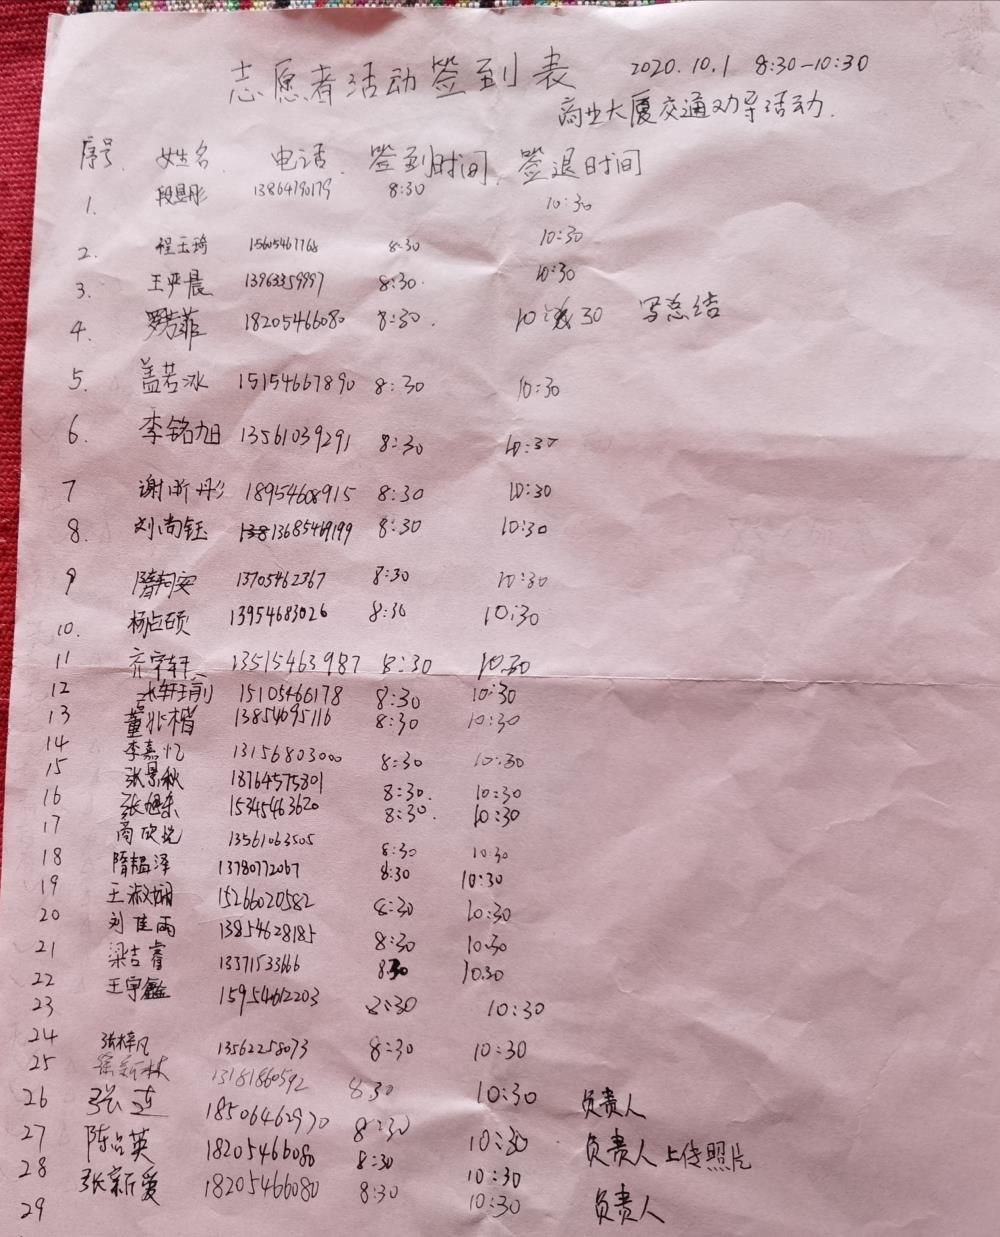 志愿者活动签到表 2020.10.1 8:30-10:30
商业大厦交通劝导活动.
序号 姓名 电话 签到时间 签退时间
1. 段昱彤 13864790179 8:30 10:30
2. 程玉琦 15605467768 8:30 10:30
3. 王严晨 13963359997 8:30 10:30
4. 罗若菲 18205466080 8:30 10:30 写总结
5. 盖若冰 15154667890 8:30 10:30
6. 李铭旭 13561039291 8:30 10:30
7 谢昕彤 18954608915 8:30 10:30
8. 刘尚钰 13685469199 8:30 10:30
9 隋柯安 13705462367 8:30 10:30
10. 杨占硕 13954683026 8:30 10:30
11 齐宇轩 13515463987 8:30 10:30
12 15105466178 8:30 10:30
13 董兆楷 13854695116 8:30 10:30
14 李嘉忆 13156803000 8:30 10:30
15 张景秋 18764575801 8:30 10:30
16 张旭东 15345463620 8:30 10:30
17 商欣悦 13561063505 8:30 10:30
18 隋韫泽 13780772067 8:30 10:30
19 王淑娴 15266020582 8:30 10:30
20 刘佳雨 13854628185 8:30 10:30
21 梁吉睿 13371533666 8:30 10:30
22 王宇鑫 15954612203 8:30 10:30
23
24 张梓凡 13562258073 8:30 10:30
25 徐新林 13181860592 8:30
26 张莲 18506462970 8:30 10:30 负责人
27 陈召英 18205466080 8:30 10:30 负责人 上传照片
28 张新爱 18205466080 8:30 10:30
29 10:30 负责人